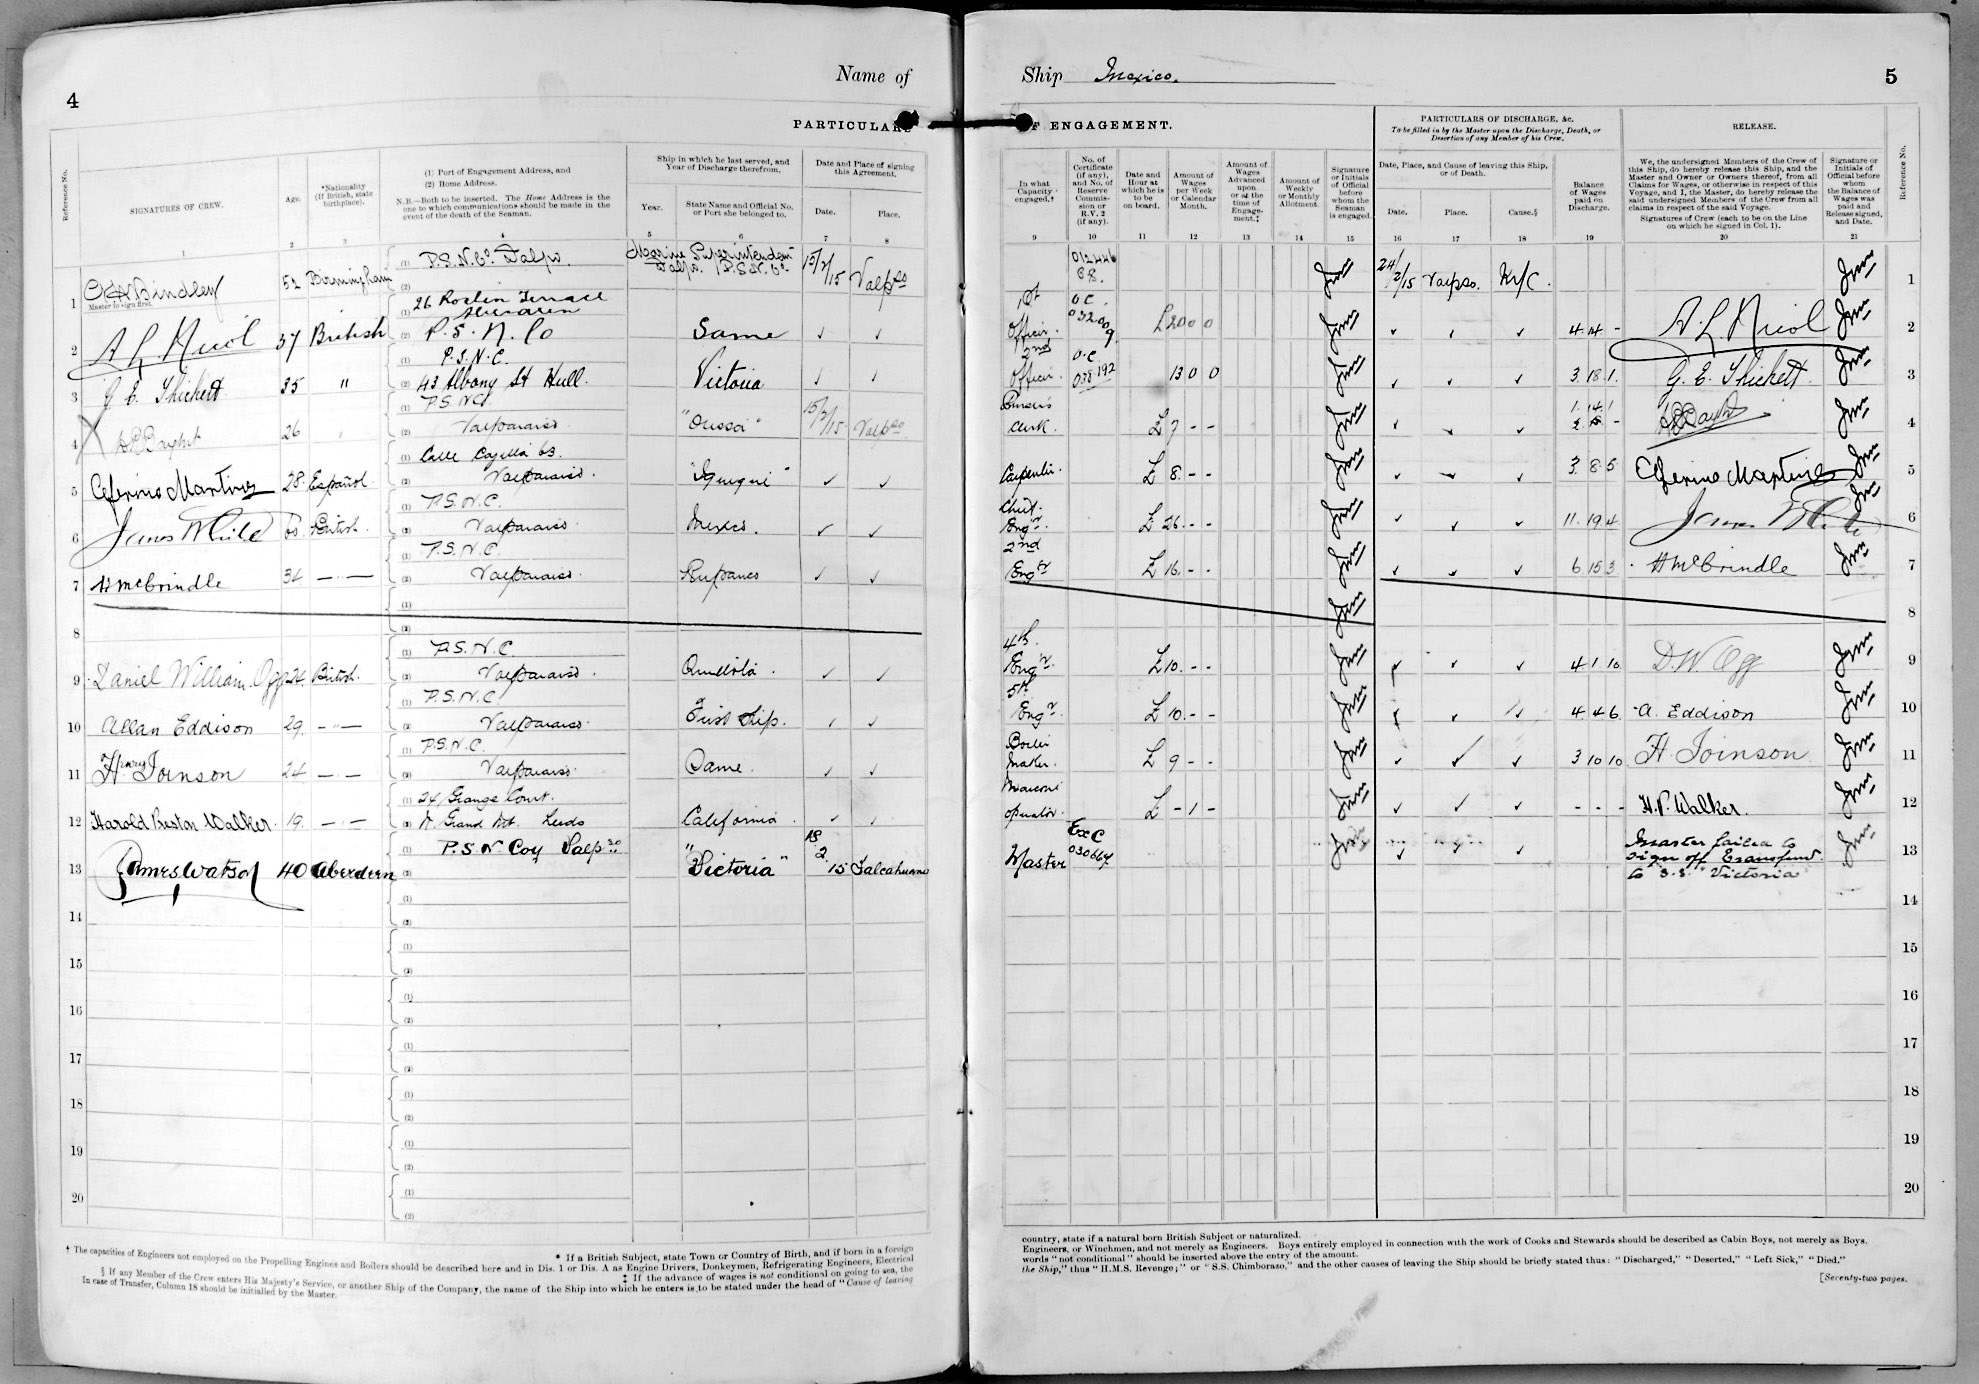 4
Name of
PARTICULARS
Reference No.
SIGNATURES OF CREW.
Age.
*Nationality
(If British, state
birthplace).
(1) Port of Engagement Address, and
(2) Home Address.
N.B.—Both to be inserted. The Home Address is the
one to which communications should be made in the
event of the death of the Seaman.
Ship in which he last served, and
Year of Discharge therefrom.
Year.
State Name and Official No.
or Port she belonged to.
Date and Place of signing
this Agreement.
Date.
Place.
1 2 3 4 5 6 7 8
1 Bindley 52 Birmingham (1) P.S.N.Co. Valpo. Marine Superintendent Valpo. P.S.N.Co. 15/2/15 Valpso
Master to sign first. (2)
2 A. L. Nicol 37 British (1) 26 Roslin Terrace Aberdeen
(2) P.S.N.Co Same ✓ ✓
3 G. E. Thickett 35 " (1) P.S.N.C.
(2) 43 Albany St Hull. Victoria ✓ ✓
4 26 (1) P.S.N.C.
(2) Valparaiso. 15/2/15 Valpso
5 Ceferino Martinez 28 Español. (1) Calle 63.
(2) Valparaiso. "Iquique" ✓ ✓
6 James White British. (1) P.S.N.C.
(2) Valparaiso. Mexico. ✓ ✓
7 H McCrindle 34 — " — (1) P.S.N.C.
(2) Valparaiso. Rupanco ✓ ✓
8 (1)
(2)
9 Daniel William Ogg 24. British. (1) P.S.N.C.
(2) Valparaiso. ✓ ✓
10 Allan Eddison 29. — " — (1) P.S.N.C.
(2) Valparaiso. First Ship. ✓ ✓
11 Henry Joinson 24 — " — (1) P.S.N.C.
(2) Valparaiso. Same. ✓ ✓
12 Harold Preston Walker. 19. — " — (1) 24 Grange Court.
(2) Leeds California. ✓ ✓
13 James Watson 40 Aberdeen (1) P.S.N. Coy Valpso
(2) "Victoria" 18 2 15 Talcahuano
14 (1)
(2)
15 (1)
(2)
16 (1)
(2)
17 (1)
(2)
18 (1)
(2)
19 (1)
(2)
20 (1)
(2)
† The capacities of Engineers not employed on the Propelling Engines and Boilers should be described here and in Dis. 1 or Dis. A as Engine Drivers, Donkeymen, Refrigerating Engineers, Electrical
* If a British Subject, state Town or Country of Birth, and if born in a foreign
§ If any Member of the Crew enters His Majesty's Service, or another Ship of the Company, the name of the Ship into which he enters is to be stated under the head of "Cause of leaving
‡ If the advance of wages is not conditional on going to sea, the
In case of Transfer, Column 18 should be initialled by the Master.
Ship Mexico.
5
OF ENGAGEMENT.
PARTICULARS OF DISCHARGE, &c.
To be filled in by the Master upon the Discharge, Death, or
Desertion of any Member of his Crew.
RELEASE.
In what
Capacity
engaged.†
No. of
Certificate
(if any),
and No. of
Reserve
Commis-
sion or
R.V. 2
(if any).
Date and
Hour at
which he is
to be
on board.
Amount of
Wages
per Week
or Calendar
Month.
Amount of
Wages
Advanced
upon
or at the
time of
Engage-
ment.‡
Amount of
Weekly
or Monthly
Allotment.
Signature
or Initials
of Official
before
whom the
Seaman
is engaged.
Date, Place, and Cause of leaving this Ship,
or of Death.
Date.
Place.
Cause.§
Balance
of Wages
paid on
Discharge.
We, the undersigned Members of the Crew of
this Ship, do hereby release this Ship, and the
Master and Owner or Owners thereof, from all
Claims for Wages, or otherwise in respect of this
Voyage, and I, the Master, do hereby release the
said undersigned Members of the Crew from all
claims in respect of the said Voyage.
Signatures of Crew (each to be on the Line
on which he signed in Col. 1).
Signature or
Initials of
Official before
whom
the Balance of
Wages was
paid and
Release signed,
and Date.
Reference No.
9 10 11 12 13 14 15 16 17 18 19 20 21
012446 24/2/15 Valpso. 1
1st Officer. O.C. 032009 £20 0 0 ✓ ✓ ✓ 4.14.- A. L. Nicol 2
2nd Officer. O.C. 038192 13 0 0 ✓ ✓ ✓ 3.18.1. G. E. Thickett. 3
Purser's Clerk. £7 - - ✓ ✓ ✓ 1.14.1 4
Carpenter. £8. - - ✓ ✓ ✓ 3.8.5 Ceferino Martinez 5
Chief Engr. £26. - - ✓ ✓ ✓ 11.19.4 James White 6
2nd Engr £16. - - ✓ ✓ ✓ 6.15.3 H McCrindle 7
8
4th Engr. £10. - - ✓ ✓ ✓ 4.1.10 D.W. Ogg 9
5th Engr. £10. - - ✓ ✓ ✓ 4.4.6. A. Eddison 10
Boiler maker. £9 - - ✓ ✓ ✓ 3 10 10 H. Joinson 11
Marconi operator. £ - 1 - ✓ ✓ ✓ - - - H.P. Walker. 12
Master Ex C 030667 ✓ ✓ Master failed to
sign off Transferred
to S.S. "Victoria" 13
14
15
16
17
18
19
20
country, state if a natural born British Subject or naturalized.
Engineers, or Winchmen, and not merely as Engineers. Boys entirely employed in connection with the work of Cooks and Stewards should be described as Cabin Boys, not merely as Boys.
words "not conditional" should be inserted above the entry of the amount.
the Ship," thus "H.M.S. Revenge;" or "S.S. Chimborazo," and the other causes of leaving the Ship should be briefly stated thus: "Discharged," "Deserted," "Left Sick," "Died."
[Seventy-two pages.